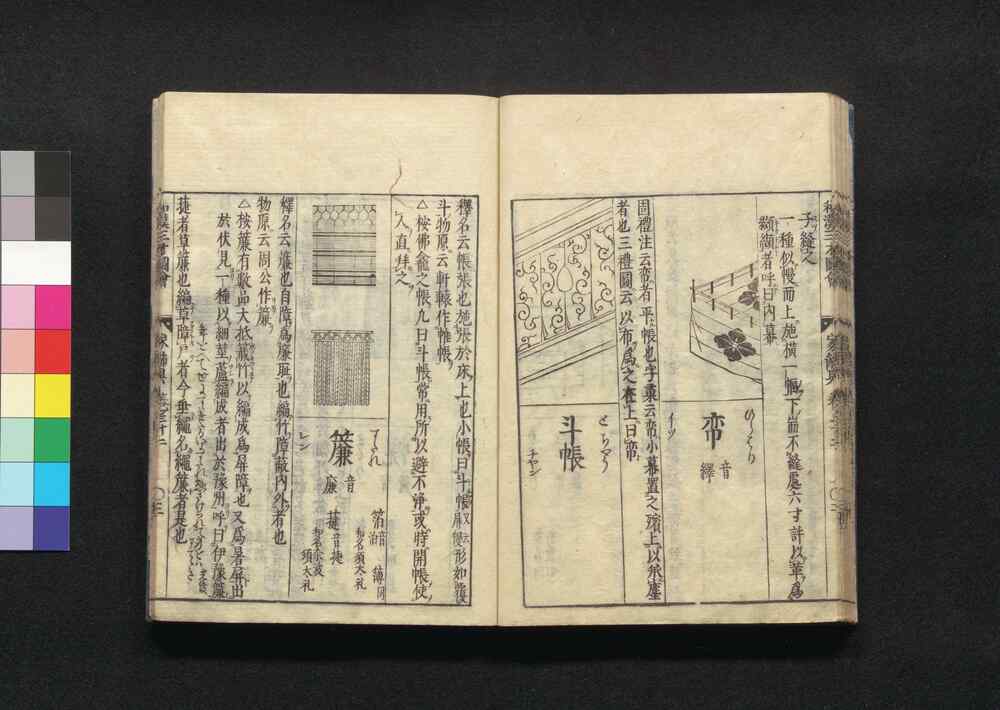 和漢三才圖會
家飾具
子縫之
一種似幔而上施横一幅下耑不縫處六寸許以革爲
纈纈者呼曰内幕
帟
音
繹
ひらはり
イツ
周禮注云帟者平帳也字彙云帟小幕置之殯上以承塵
者也三禮圖云以布爲之在上曰帟
斗帳
とちやう
チヤン
釋名云帳張也施張於床上也小帳曰斗帳形如覆
斗物原云軒轅作帷帳
△按佛龕之帳凡曰斗帳常用所以避不浄或時開帳使
人直拜之
簾
音
廉
すたれ
レン
箔
音泊
簿同
和名須太礼
䈐音捷
和名
須太礼
釋名云簾也自障爲廉耻也編竹障蔽内外者也
物原云周公作簾
△按簾有數品大抵薮竹以編成爲屏障也又爲暑屏出
於伏見一種以細莖蘆編成者出於豫州呼曰伊豫簾
箑者草簾也編草障戸者今垂繩名繩簾者是也
和漢三才圖會
家飾具